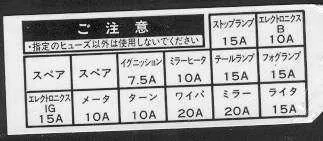 ご注意
・指定のヒューズ以外は使用しないでください
ストップランプ
15A
エレクトロニクス
B
10A
スペア
スペア
イグニッション
7.5A
ミラーヒータ
10A
テールランプ
15A
フォグランプ
15A
エレクトロニクス
IG
15A
メータ
10A
ターン
10A
ワイパ
20A
ミラー
20A
ライタ
15A